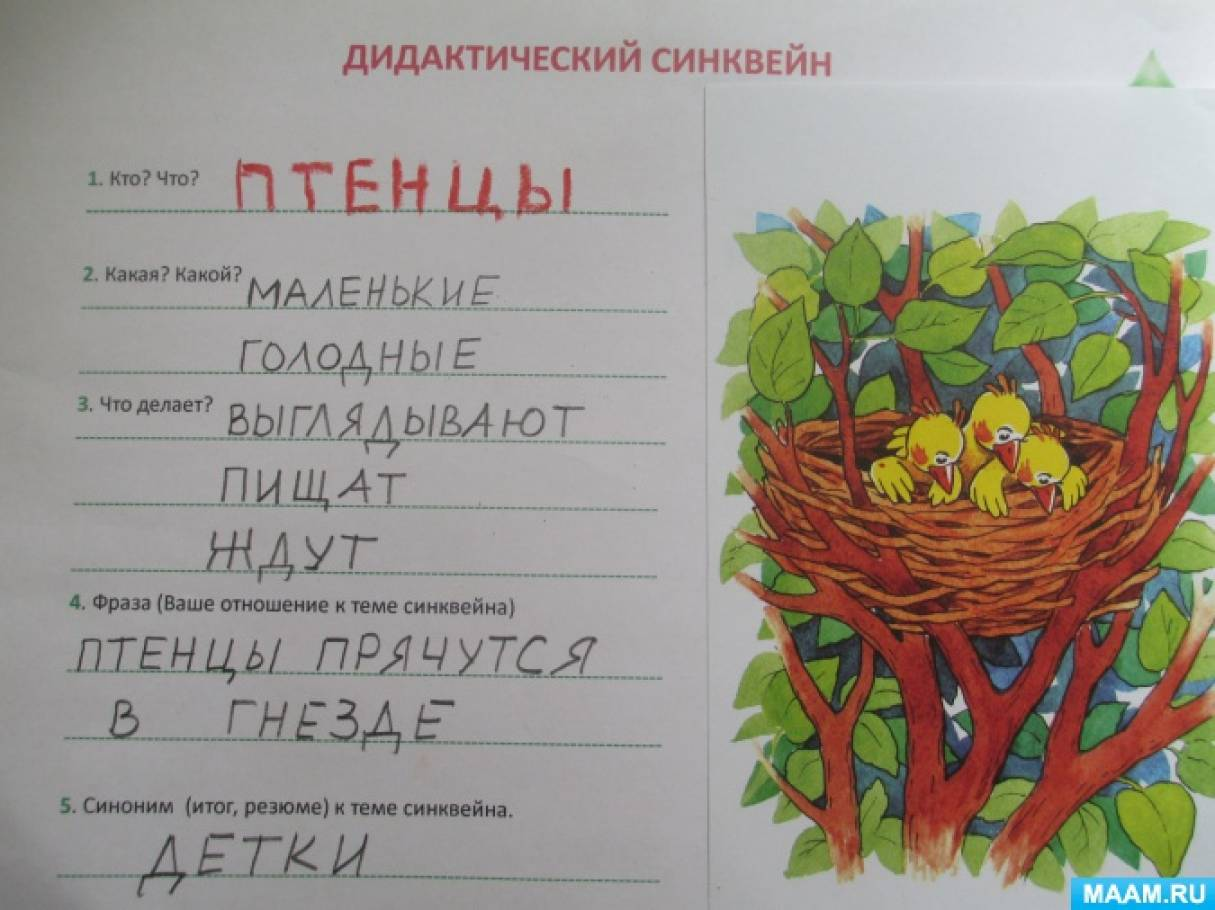 ДИДАКТИЧЕСКИЙ СИНКВЕЙН
1. Кто? Что? ПТЕНЦЫ
2. Какая? Какой? МАЛЕНЬКИЕ
ГОЛОДНЫЕ
3. Что делает? ВЫГЛЯДЫВАЮТ
ПИЩАТ
ЖДУТ
4. Фраза (Ваше отношение к теме синквейна)
ПТЕНЦЫ ПРЯЧУТСЯ
В ГНЕЗДЕ
5. Синоним (итог, резюме) к теме синквейна.
ДЕТКИ
MAAM.RU